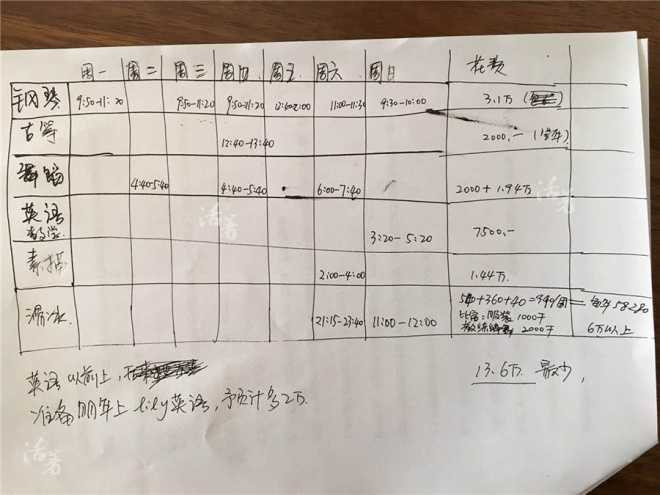 周一 周二 周三 周四 周五 周六 周日 花费
钢琴 9:50-11:20 9:50-11:20 9:50-11:20 11:00-11:30 9:30-10:00 3.1万
古筝 12:40-13:40 2000,-
舞蹈 4:40-5:40 4:40-5:40 6:00-7:40 2000+1.94万
英语
数学 3:20-5:20 7500,-
素描 2:00-4:00 1.44万
滑冰 21:15-23:40 11:00-12:00
+360+40=
比赛:服装 1000千
教练 2000千
6万以上
英语以前上,
准备明年上lily英语,预计多2万.
13.6万 最少,
活着
活着
活着